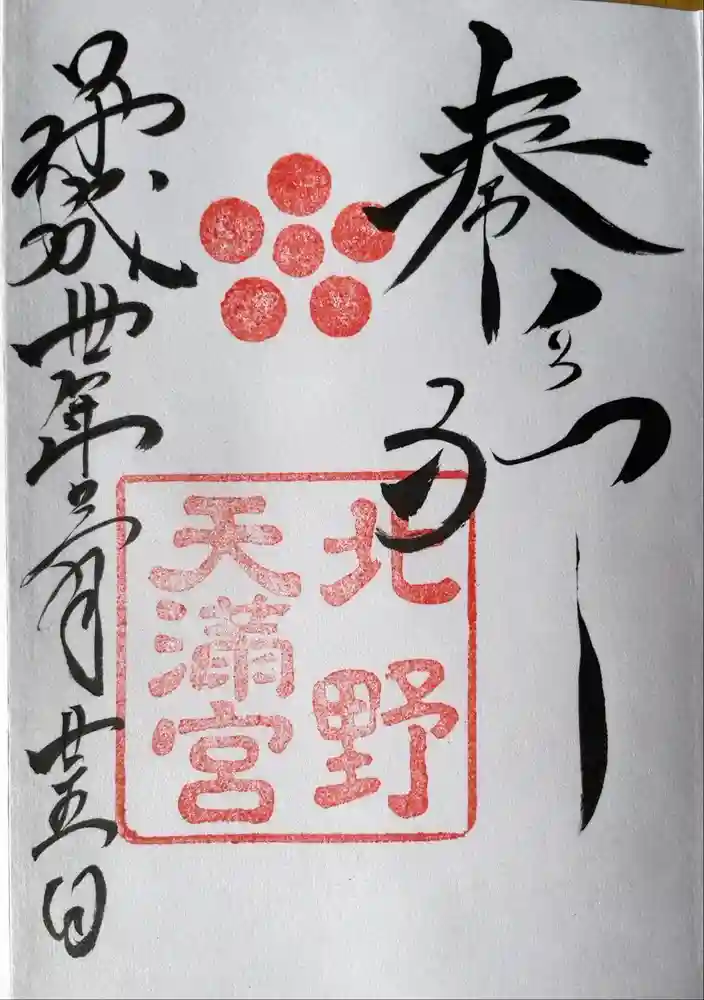 奉拝
北野
天満宮
平成丗年月廿五日